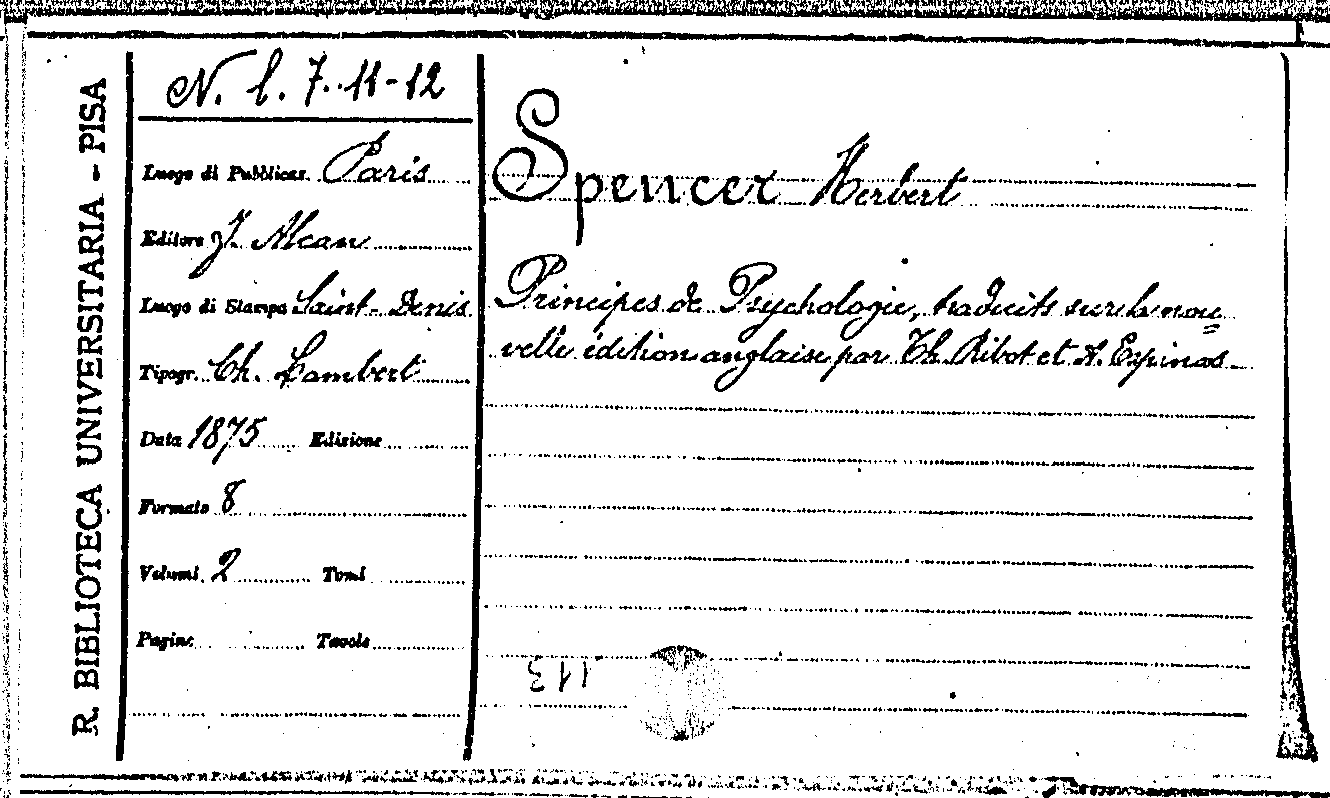 R. BIBLIOTECA UNIVERSITARIA - PISA
N. l. 7. 11-12
Luogo di Pubblicaz. Paris
Editore J. Alcan
Luogo di Stampa Saint-Denis
Tipogr. Ch. Lambert
Data 1875 Edizione
Formato 8
Volumi 2 Tomi
Pagine Tavole
Spencer Herbert
Principes de Psychologie, traduits sur la nou=
velle édition anglaise par Th. Ribot et A. Espinas
113